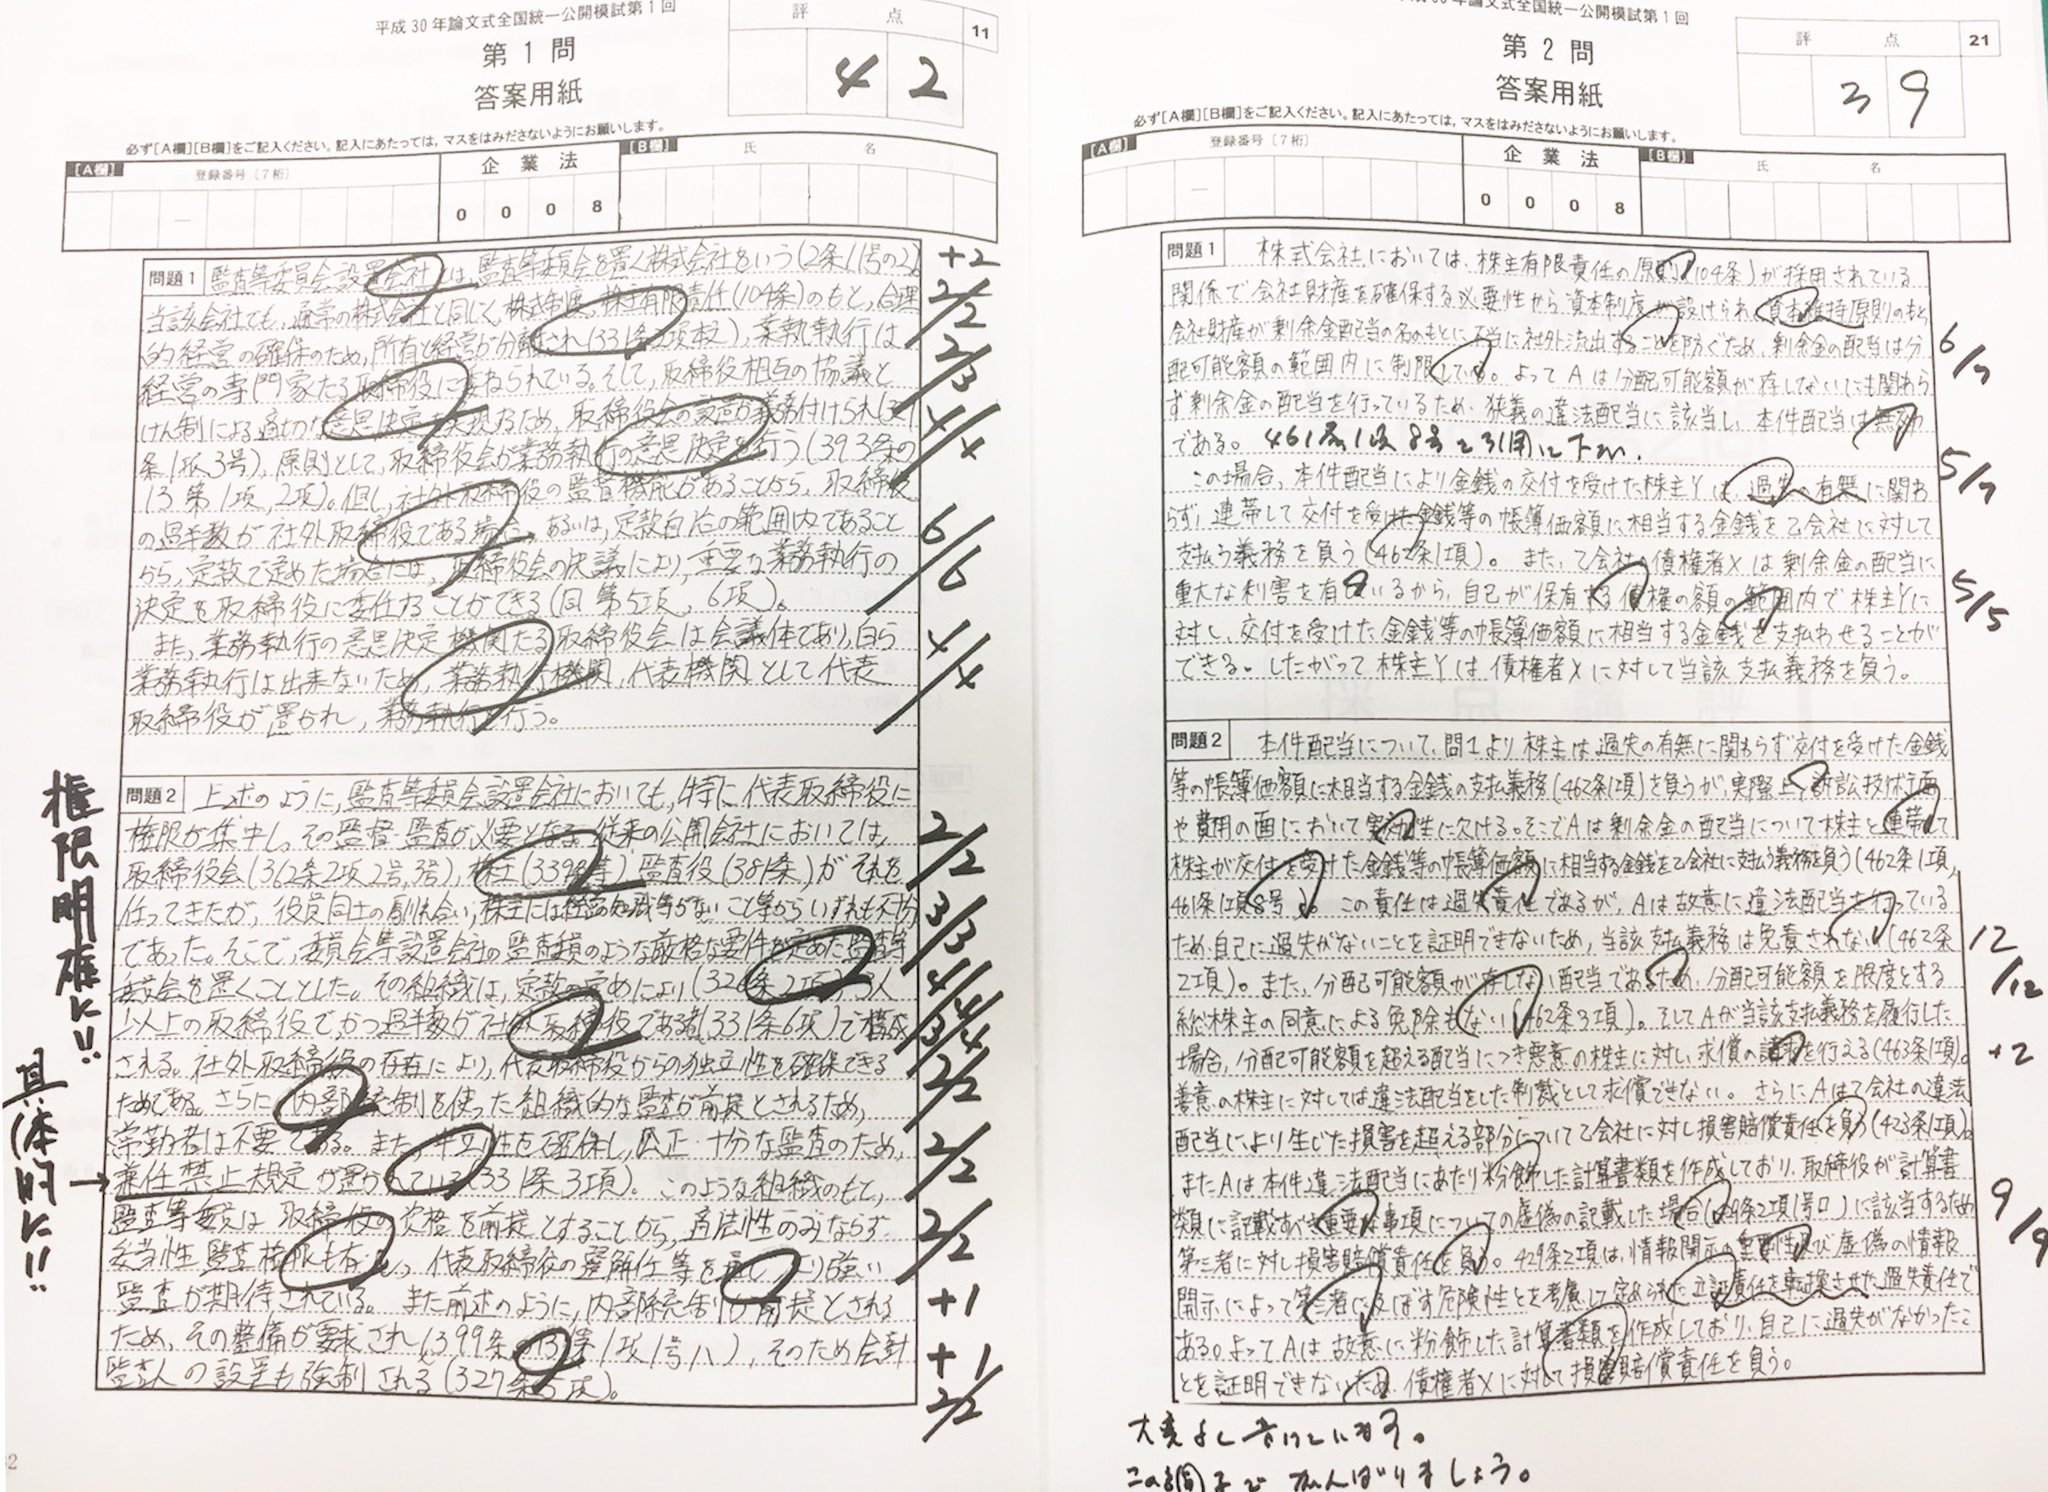 平成30年論文式全国統一公開模試第1回
第1問
答案用紙
評 点
11
42
必ず[A欄][B欄]をご記入ください。記入にあたっては,マスをはみださないようにお願いします。
[A欄]
登録番号〔7桁〕
企業法
0008
[B欄]
氏 名
問題1
監査等委員会設置会社とは,監査等委員会を置く株式会社をいう(2条11号の2)。
当該会社でも,通常の株式会社と同じく,株式制度,株主有限責任(104条)のもと,合理
的経営の確保のため,所有と経営が分離され(331条2項本文),業務執行は
経営の専門家たる取締役に委ねられている。そして,取締役相互の協議と
けん制による適切な意思決定を実現するため,取締役会の設置が義務付けられ(327
条1項3号),原則として,取締役会が業務執行の意思決定を行う(393条の
13第1項,2項)。但し,社外取締役の監督機能があることから,取締役
の過半数が社外取締役である場合,あるいは,定款自治の範囲内であること
から,定款で定めた場合には,取締役会の決議により,重要な業務執行の
決定を取締役に委任することができる(同第5項,6項)。
また,業務執行の意思決定機関たる取締役会は会議体であり,自ら
業務執行は出来ないため,業務執行機関,代表機関として代表
取締役が置かれ,業務執行を行う。
+2
2/2
2/3
4/4
6/6
4/4
問題2
上述のように,監査等委員会設置会社においても,特に代表取締役に
権限が集中し,その監督・監査が必要となる。従来の公開会社においては,
取締役会(362条2項2号,3号),株主(339条等)監査役(381条)がそれを
任ってきたが,役員同士の馴れ合い,株主には経営の知識等がないこと等からいずれも不十分
であった。そこで,委員会等設置会社の監査委員のような厳格な要件を定めた監査等
委員会を置くこととした。その組織は,定款の定めにより(326条2項)3人
以上の取締役で,かつ過半数が社外取締役である者(331条6項)で構成
される。社外取締役の存在により,代表取締役からの独立性を確保できる
ためである。さらに,内部統制を使った組織的な監査が前提とされるため,
常勤者は不要である。また,中立性を確保し,公正・十分な監査のため,
兼任禁止規定が置かれている(331条3項)。このような組織のもと,
監査等委員は,取締役の資格を前提とすることから,適法性のみならず
妥当性監査権限も有し,代表取締役の選解任等を通じ,より強い
監査が期待されている。また前述のように,内部統制が前提とされる
ため,その整備が要求され(399条の13第1項1号ハ),そのため会計
監査人の設置も強制される(327条5項)。
権限明確に!!
具体的に!!
2/2
3/3
4/4
2/2
2/2
2/2
+1
+1
2/2
平成30年論文式全国統一公開模試第1回
第2問
答案用紙
評 点
21
39
必ず[A欄][B欄]をご記入ください。記入にあたっては,マスをはみださないようにお願いします。
[A欄]
登録番号〔7桁〕
企業法
0008
[B欄]
氏 名
問題1
株式会社においては,株主有限責任の原則(104条)が採用されている
関係で会社財産を確保する必要性から資本制度が設けられ,資本維持原則のもと,
会社財産が剰余金配当の名のもとに不当に社外流出することを防ぐため,剰余金の配当は分
配可能額の範囲内に制限している。よってAは分配可能額が存しないにも関わら
ず剰余金の配当を行っているため,狭義の違法配当に該当し,本件配当は無効
である。 461条1項8号を引用に下さい。
この場合,本件配当により金銭の交付を受けた株主Yは,過失の有無に関わ
らず,連帯して交付を受けた金銭等の帳簿価額に相当する金銭を乙会社に対して
支払う義務を負う(462条1項)。また,乙会社の債権者Xは剰余金の配当に
重大な利害を有しているから,自己が保有する債権の額の範囲内で株主Yに
対し,交付を受けた金銭等の帳簿価額に相当する金銭を支払わせることが
できる。したがって株主Yは債権者Xに対して当該支払義務を負う。
6/7
5/7
5/5
問題2
本件配当について,問1より株主は過失の有無に関わらず交付を受けた金銭
等の帳簿価額に相当する金銭の支払義務(462条1項)を負うが,実際上,訴訟技術面
や費用の面において実効性に欠ける。そこでAは剰余金の配当について株主と連帯して
株主が交付を受けた金銭等の帳簿価額に相当する金銭を乙会社に支払う義務を負う(462条1項,
461条1項8号)。この責任は過失責任であるが,Aは故意に違法配当を行っている
ため,自己に過失がないことを証明できないため,当該支払義務は免責されない(462条
2項)。また,分配可能額が存しない配当であるため,分配可能額を限度とする
総株主の同意による免除もない(462条3項)。そしてAが当該支払義務を履行した
場合,分配可能額を超える配当につき悪意の株主に対し,求償の請求を行える(463条1項)。
善意の株主に対しては違法配当をした制裁として求償できない。さらにAは乙会社の違法
配当により生じた損害を超える部分について乙会社に対し損害賠償責任を負う(423条1項)。
またAは本件違法配当にあたり粉飾した計算書類を作成しており,取締役が計算書
類に記載すべき重要な事項についての虚偽の記載した場合(429条2項1号ロ)に該当するため
第三者に対し損害賠償責任を負う。429条2項は,情報開示の重要性及び虚偽の情報
開示によって第三者に及ぼす危険性とを考慮して定められた立証責任を転換させた過失責任で
ある。よってAは故意に粉飾した計算書類を作成しており,自己に過失がなかったこ
とを証明できないため,債権者Xに対して損害賠償責任を負う。
12/12
+2
9/9
大変よく書けています。
この調子でがんばりましょう。